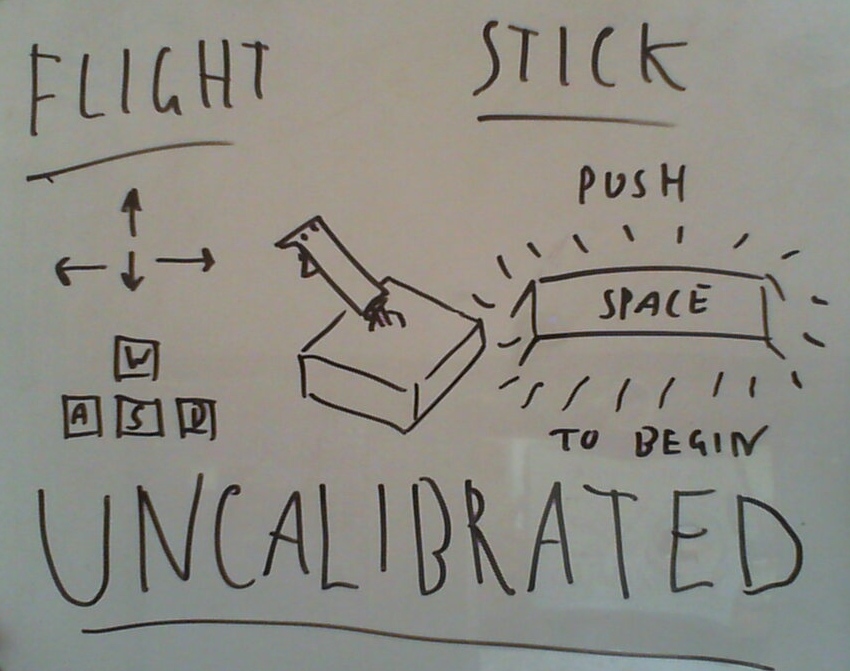 FLIGHT STICK
PUSH
SPACE
TO BEGIN
W
A S D
UNCALIBRATED